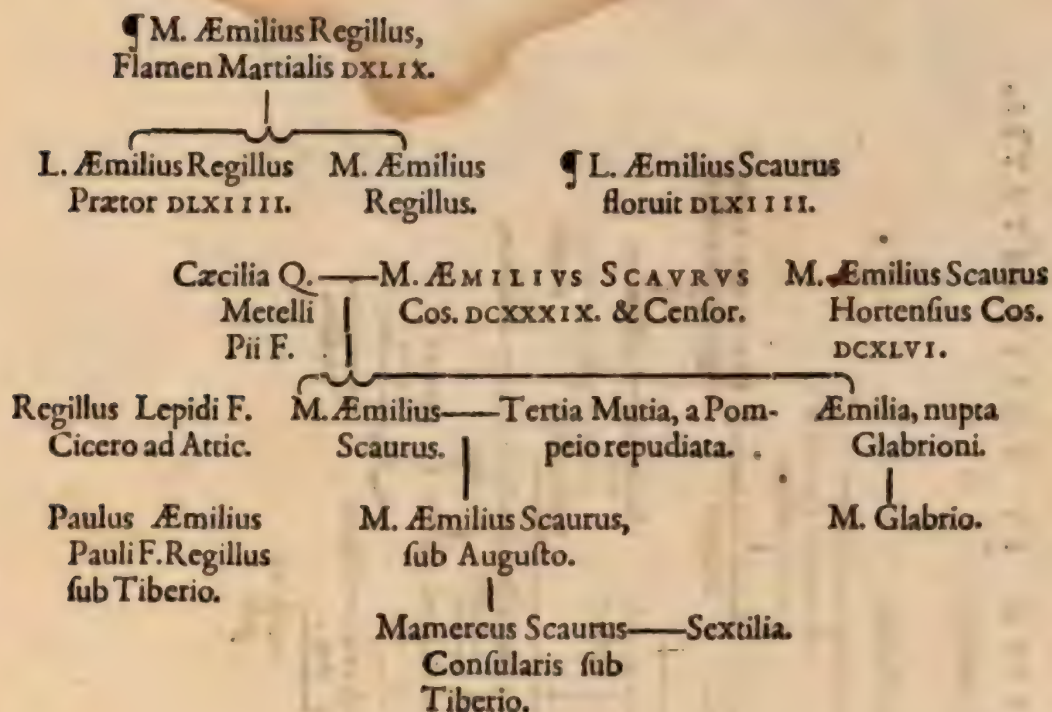 ¶ M. Æmilius Regillus,
Flamen Martialis DXLIX.
L. Æmilius Regillus
Prætor DLXIIII.
M. Æmilius
Regillus.
¶ L. Æmilius Scaurus
floruit DLXIIII.
Cæcilia Q.
Metelli
Pii F.
M. ÆMILIVS SCAVRVS
Cos. DCXXXIX. & Cenſor.
M. Æmilius Scaurus
Hortenſius Cos.
DCXLVI.
Regillus Lepidi F.
Cicero ad Attic.
M. Æmilius
Scaurus.
Tertia Mutia, a Pom-
peio repudiata.
Æmilia, nupta
Glabrioni.
Paulus Æmilius
Pauli F. Regillus
ſub Tiberio.
M. Æmilius Scaurus,
ſub Auguſto.
M. Glabrio.
Mamercus Scaurus
Conſularis ſub
Tiberio.
Sextilia.